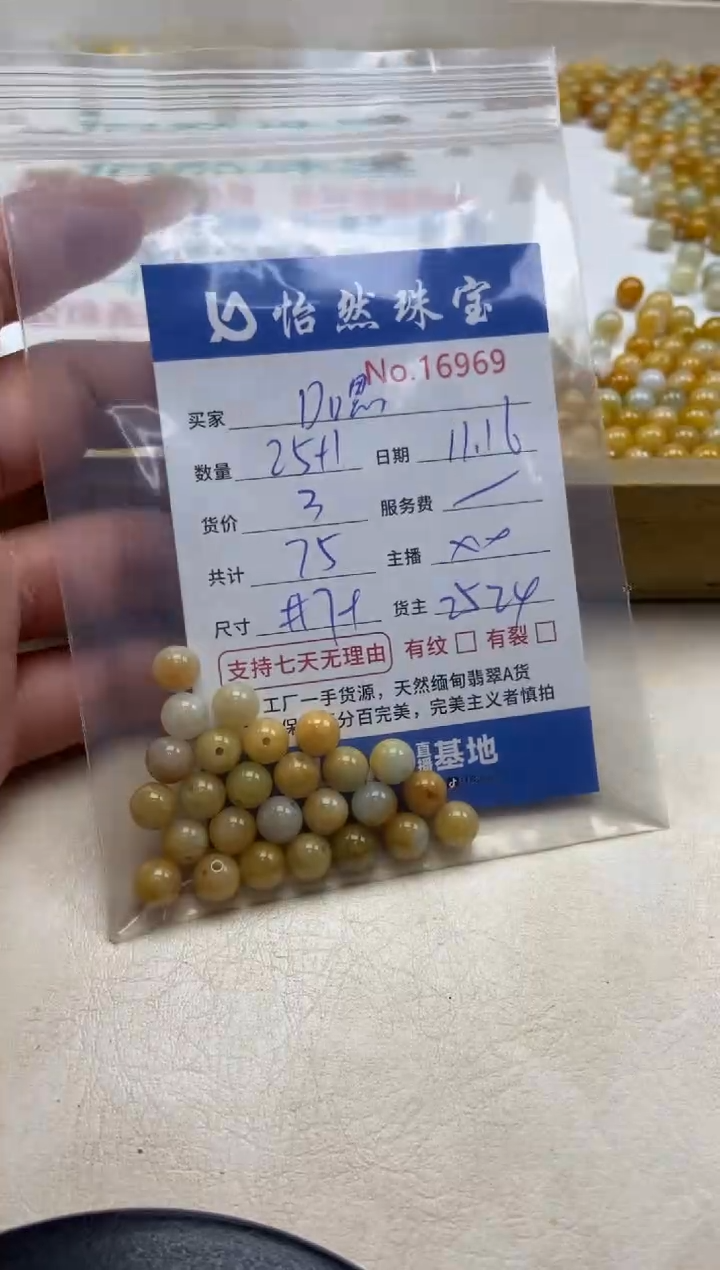 怡然珠宝
No.16969
买家 Du黑
数量 25+1 日期 11.16
货价 3 服务费
共计 75 主播 xx
尺寸 #7+ 货主 2524
支持七天无理由 有纹 有裂
工厂一手货源，天然缅甸翡翠A货
保 分百完美，完美主义者慎拍
直播基地